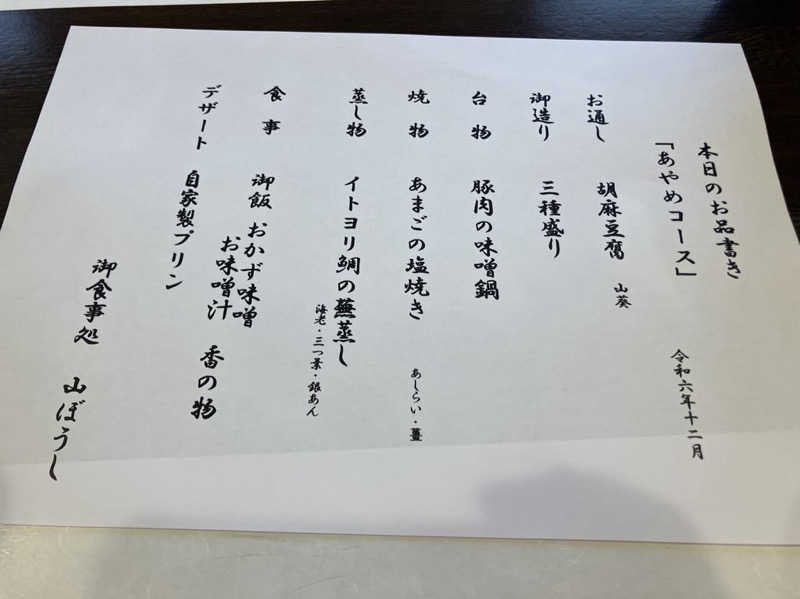 本日のお品書き
「あやめコース」 令和六年十二月
お通し 胡麻豆腐 山葵
御造り 三種盛り
台物 豚肉の味噌鍋
焼物 あまごの塩焼き あしらい・薑
蒸し物 イトヨリ鯛の蕪蒸し
海老・三つ葉・銀あん
食事 御飯 おかず味噌
お味噌汁 香の物
デザート 自家製プリン
御食事処 山ぼうし